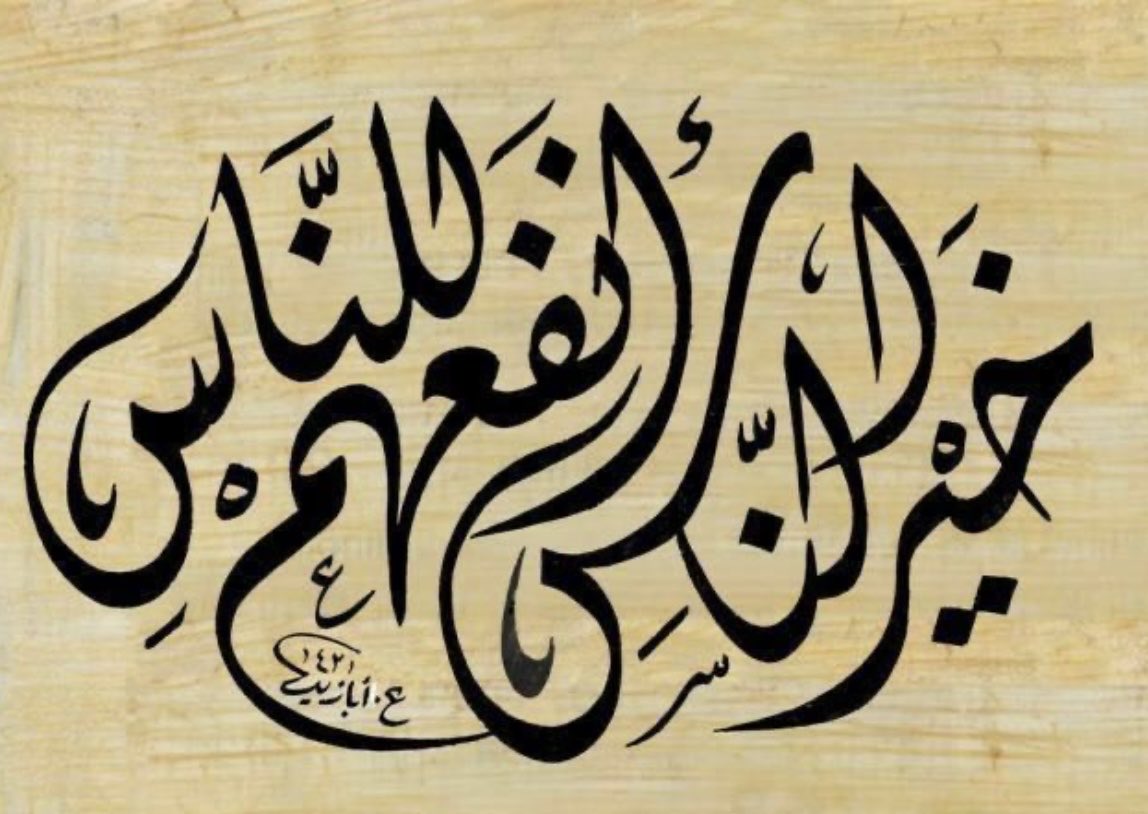 خَيْرُ النَّاسِ أَنفَعُهُم لِلنَّاسِ
ع. أبازيد
١٤٢١